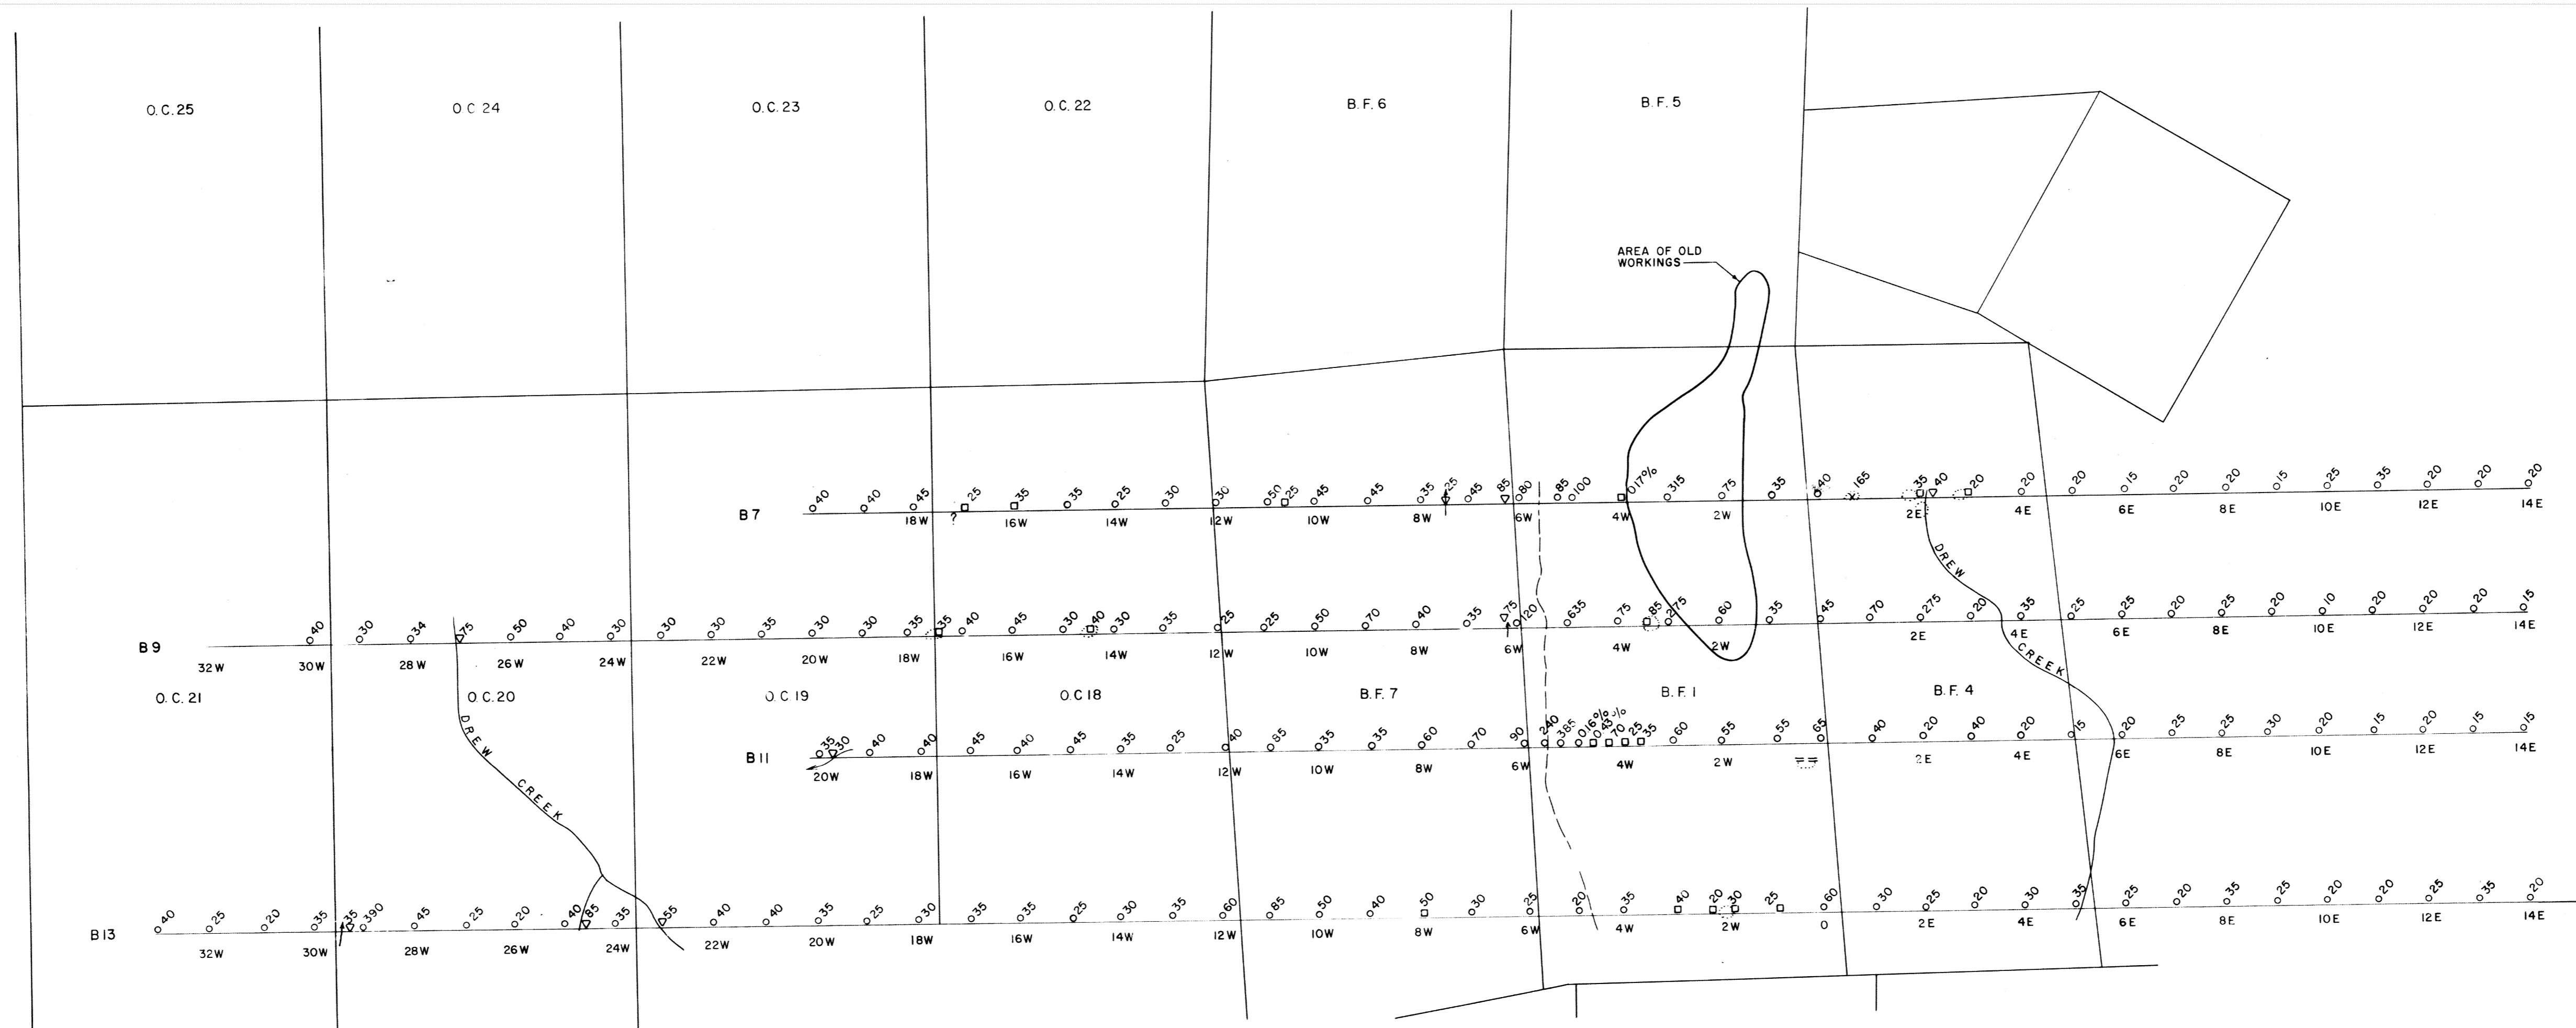 O.C.25 O C 24 O.C.23 O.C.22 B.F.6 B.F.5
AREA OF OLD
WORKINGS
40 40 45 25 35 35 25 30 30 50 25 45 45 35 25 45 85 80 85 100 017% 315 75 35 40 165 35 40 20 20 20 15 20 20 15 25 35 20 20 20
B7 18W ? 16W 14W 12W 10W 8W 6W 4W 2W 2E 4E 6E 8E 10E 12E 14E
DREW
40 30 34 75 50 40 30 30 30 35 30 30 35 35 40 45 30 40 30 35 25 25 50 70 40 35 75 120 635 75 85 275 60 35 45 70 275 20 35 25 25 20 25 20 10 20 20 20 15
B9
32W 30W 28W 26W 24W 22W 20W 18W 16W 14W 12W 10W 8W 6W 4W 2W 2E 4E 6E 8E 10E 12E 14E
CREEK
O.C.21 O.C.20 O.C 19 O.C 18 B.F.7 B.F.1 B.F.4
DREW
35 30 40 40 45 40 45 35 25 40 85 35 35 60 70 90 240 385 016% 043% 70 25 35 60 55 55 65 40 20 40 20 15 20 25 25 30 20 15 20 15 15
B11 20W 18W 16W 14W 12W 10W 8W 6W 4W 2W 2E 4E 6E 8E 10E 12E 14E
CREEK
40 25 20 35 35 390 45 25 20 40 85 35 55 40 40 35 25 30 35 35 25 30 35 60 85 50 40 50 30 25 20 35 40 20 30 25 60 30 25 20 30 35 25 20 35 25 20 20 25 35 20
B13
32W 30W 28W 26W 24W 22W 20W 18W 16W 14W 12W 10W 8W 6W 4W 2W O 2E 4E 6E 8E 10E 12E 14E